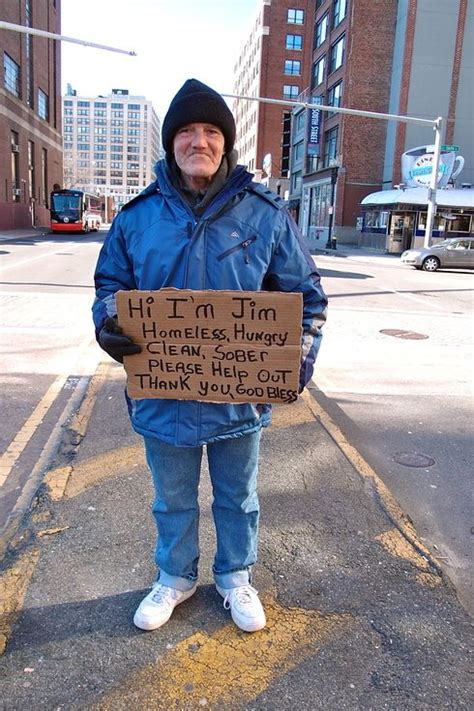 Hi I'm Jim
Homeless, Hungry
Clean, Sober
Please Help Out
Thank you, God Bless